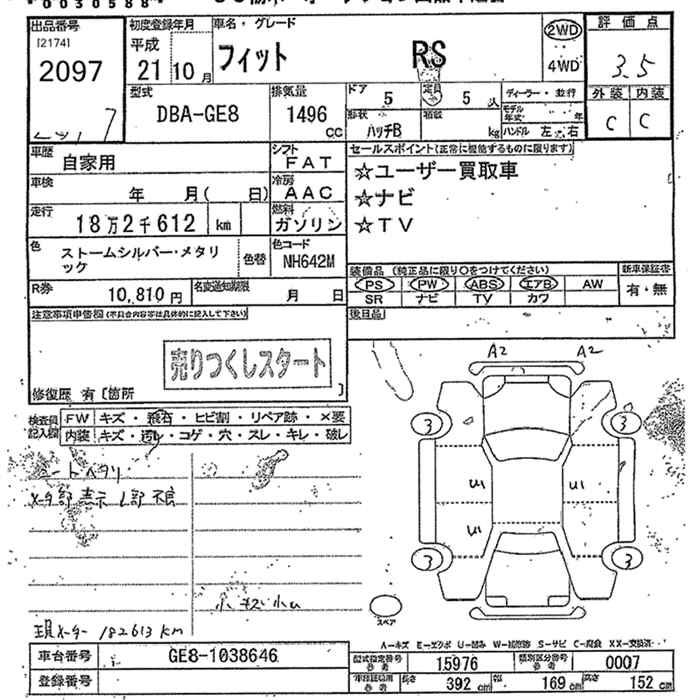 0030588
出品番号
[2174]
2097
初度登録年月
平成
21 10 月
車名・グレード
フィット RS
2WD
4WD
評価点
3.5
外装 内装
C C
型式
DBA-GE8
排気量
1496
CC
ドア 5
定員 5 人
形状
ハッチB
積載 kg
ディーラー・並行
モデル年式 年
ハンドル 左 右
車歴
自家用
シフト
FAT
車検
年 月( 日)
冷房
AAC
走行
18万2千612 km
燃料
ガソリン
色
ストームシルバー・メタリック
色替
色コード
NH642M
R券
10,810 円
名変通知期限
月 日
セールスポイント(正常に機能するものに限ります)
☆ユーザー買取車
☆ナビ
☆TV
装備品 (純正品に限り○をつけてください)
PS PW ABS エアB AW
SR ナビ TV カワ
新車保証書
有・無
後日品
注意事項申告欄(不具合内容等は具体的に記入して下さい)
売りつくしスタート
修復歴 有 [箇所 ]
検査員記入欄
FW キズ・飛石・ヒビ割・リペア跡・×要
内装 キズ・汚れ・コゲ・穴・スレ・キレ・破レ
シートヘタリ
メータ部 表示 L部 不良
小キズ小凹
現メーター 182613 km
A2 A2
3 3
U1 U1
U1
3 3
スペア
A-キズ E-エクボ U-凹み W-補修跡 S-サビ C-腐食 XX-交換済
車台番号
GE8-1038646
登録番号
型式指定番号 参考
15976
類別区分番号 参考
0007
車検証記載 参考
長さ 392 cm 幅 169 cm 高さ 152 cm